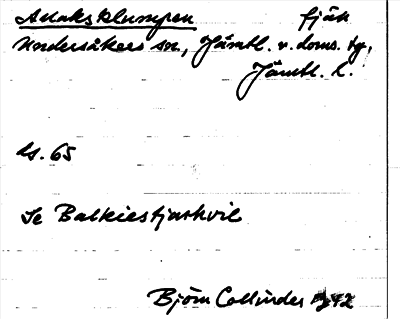 Anaksklumpen fjäll
Undersåkers sn, Jämtl. v. doms. tg,
Jämtl. l.
ls. 65
Se Balkiestjarkvil
Björn Collinder 1942